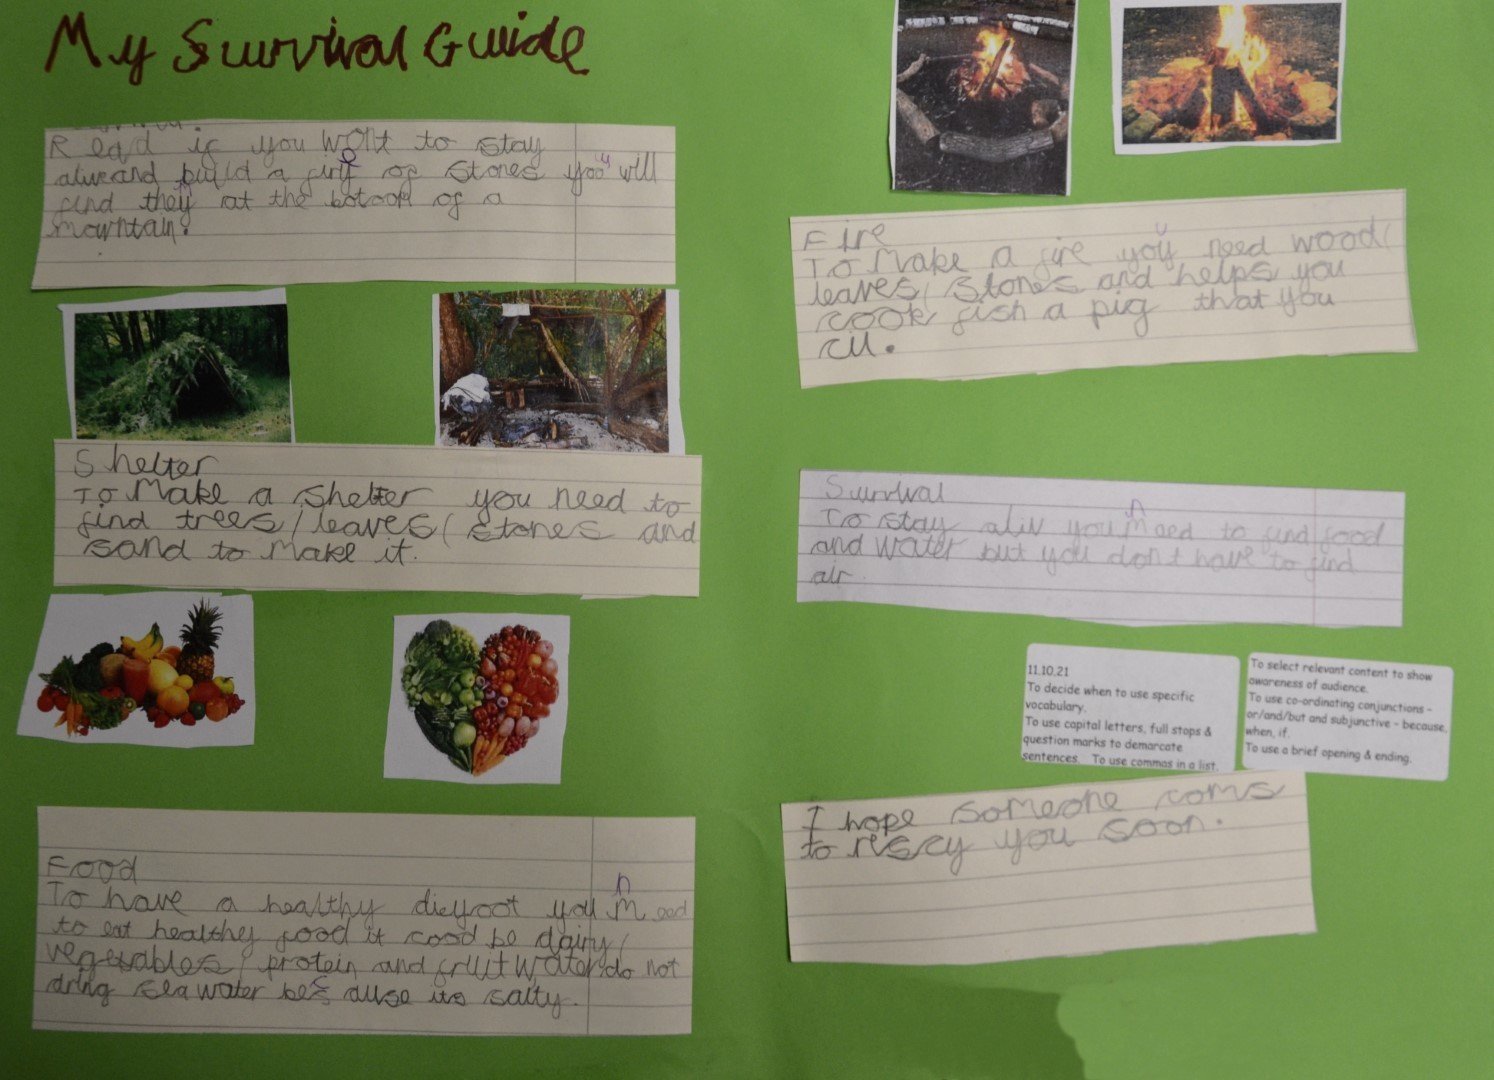 My Survival Guide
Read if you wont to stay
alive and build a
of stones you will
find they at the botoom of a
mountain.
Shelter
To Make a shelter you need to
find trees, leaves, stones and
sand to Make it.
Food
To have a healthy dieyoot you need
to eat healthy food it cood be dairy,
vegetables, protein and fruit water do not
dring sea water because its salty.
Fire
To Make a fire you need wood,
leaves, stones and helps you
cook fish a pig that you
Survival
To stay aliv you need to find food
and water but you dont have to find
air
11.10.21
To decide when to use specific
vocabulary.
To use capital letters, full stops &
question marks to demarcate
sentences. To use commas in a list.
To select relevant content to show
awareness of audience.
To use co-ordinating conjunctions -
or/and/but and subjunctive - because,
when, if.
To use a brief opening & ending.
I hope someone coms
to rescy you soon.